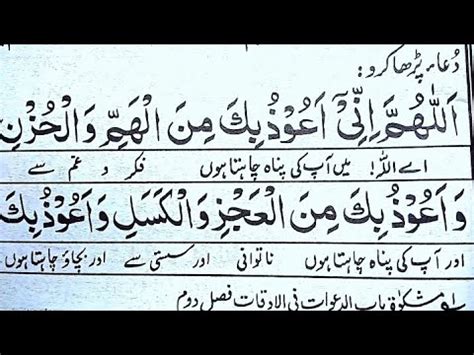 دُعاء پڑھا کرو:
اَللّٰهُمَّ اِنِّیْٓ اَعُوْذُ بِكَ مِنَ الْهَمِّ وَالْحُزْنِ
اے اللہ! میں آپ کی پناہ چاہتا ہوں فکر و غم سے
وَ اَعُوْذُ بِكَ مِنَ الْعَجْزِ وَالْكَسَلِ وَ اَعُوْذُ بِكَ
اور آپ کی پناہ چاہتا ہوں ناتوانی اور سستی سے اور بچاؤ چاہتا ہوں
مشکوٰۃ باب الدعوات فی الاوقات فصل دوم